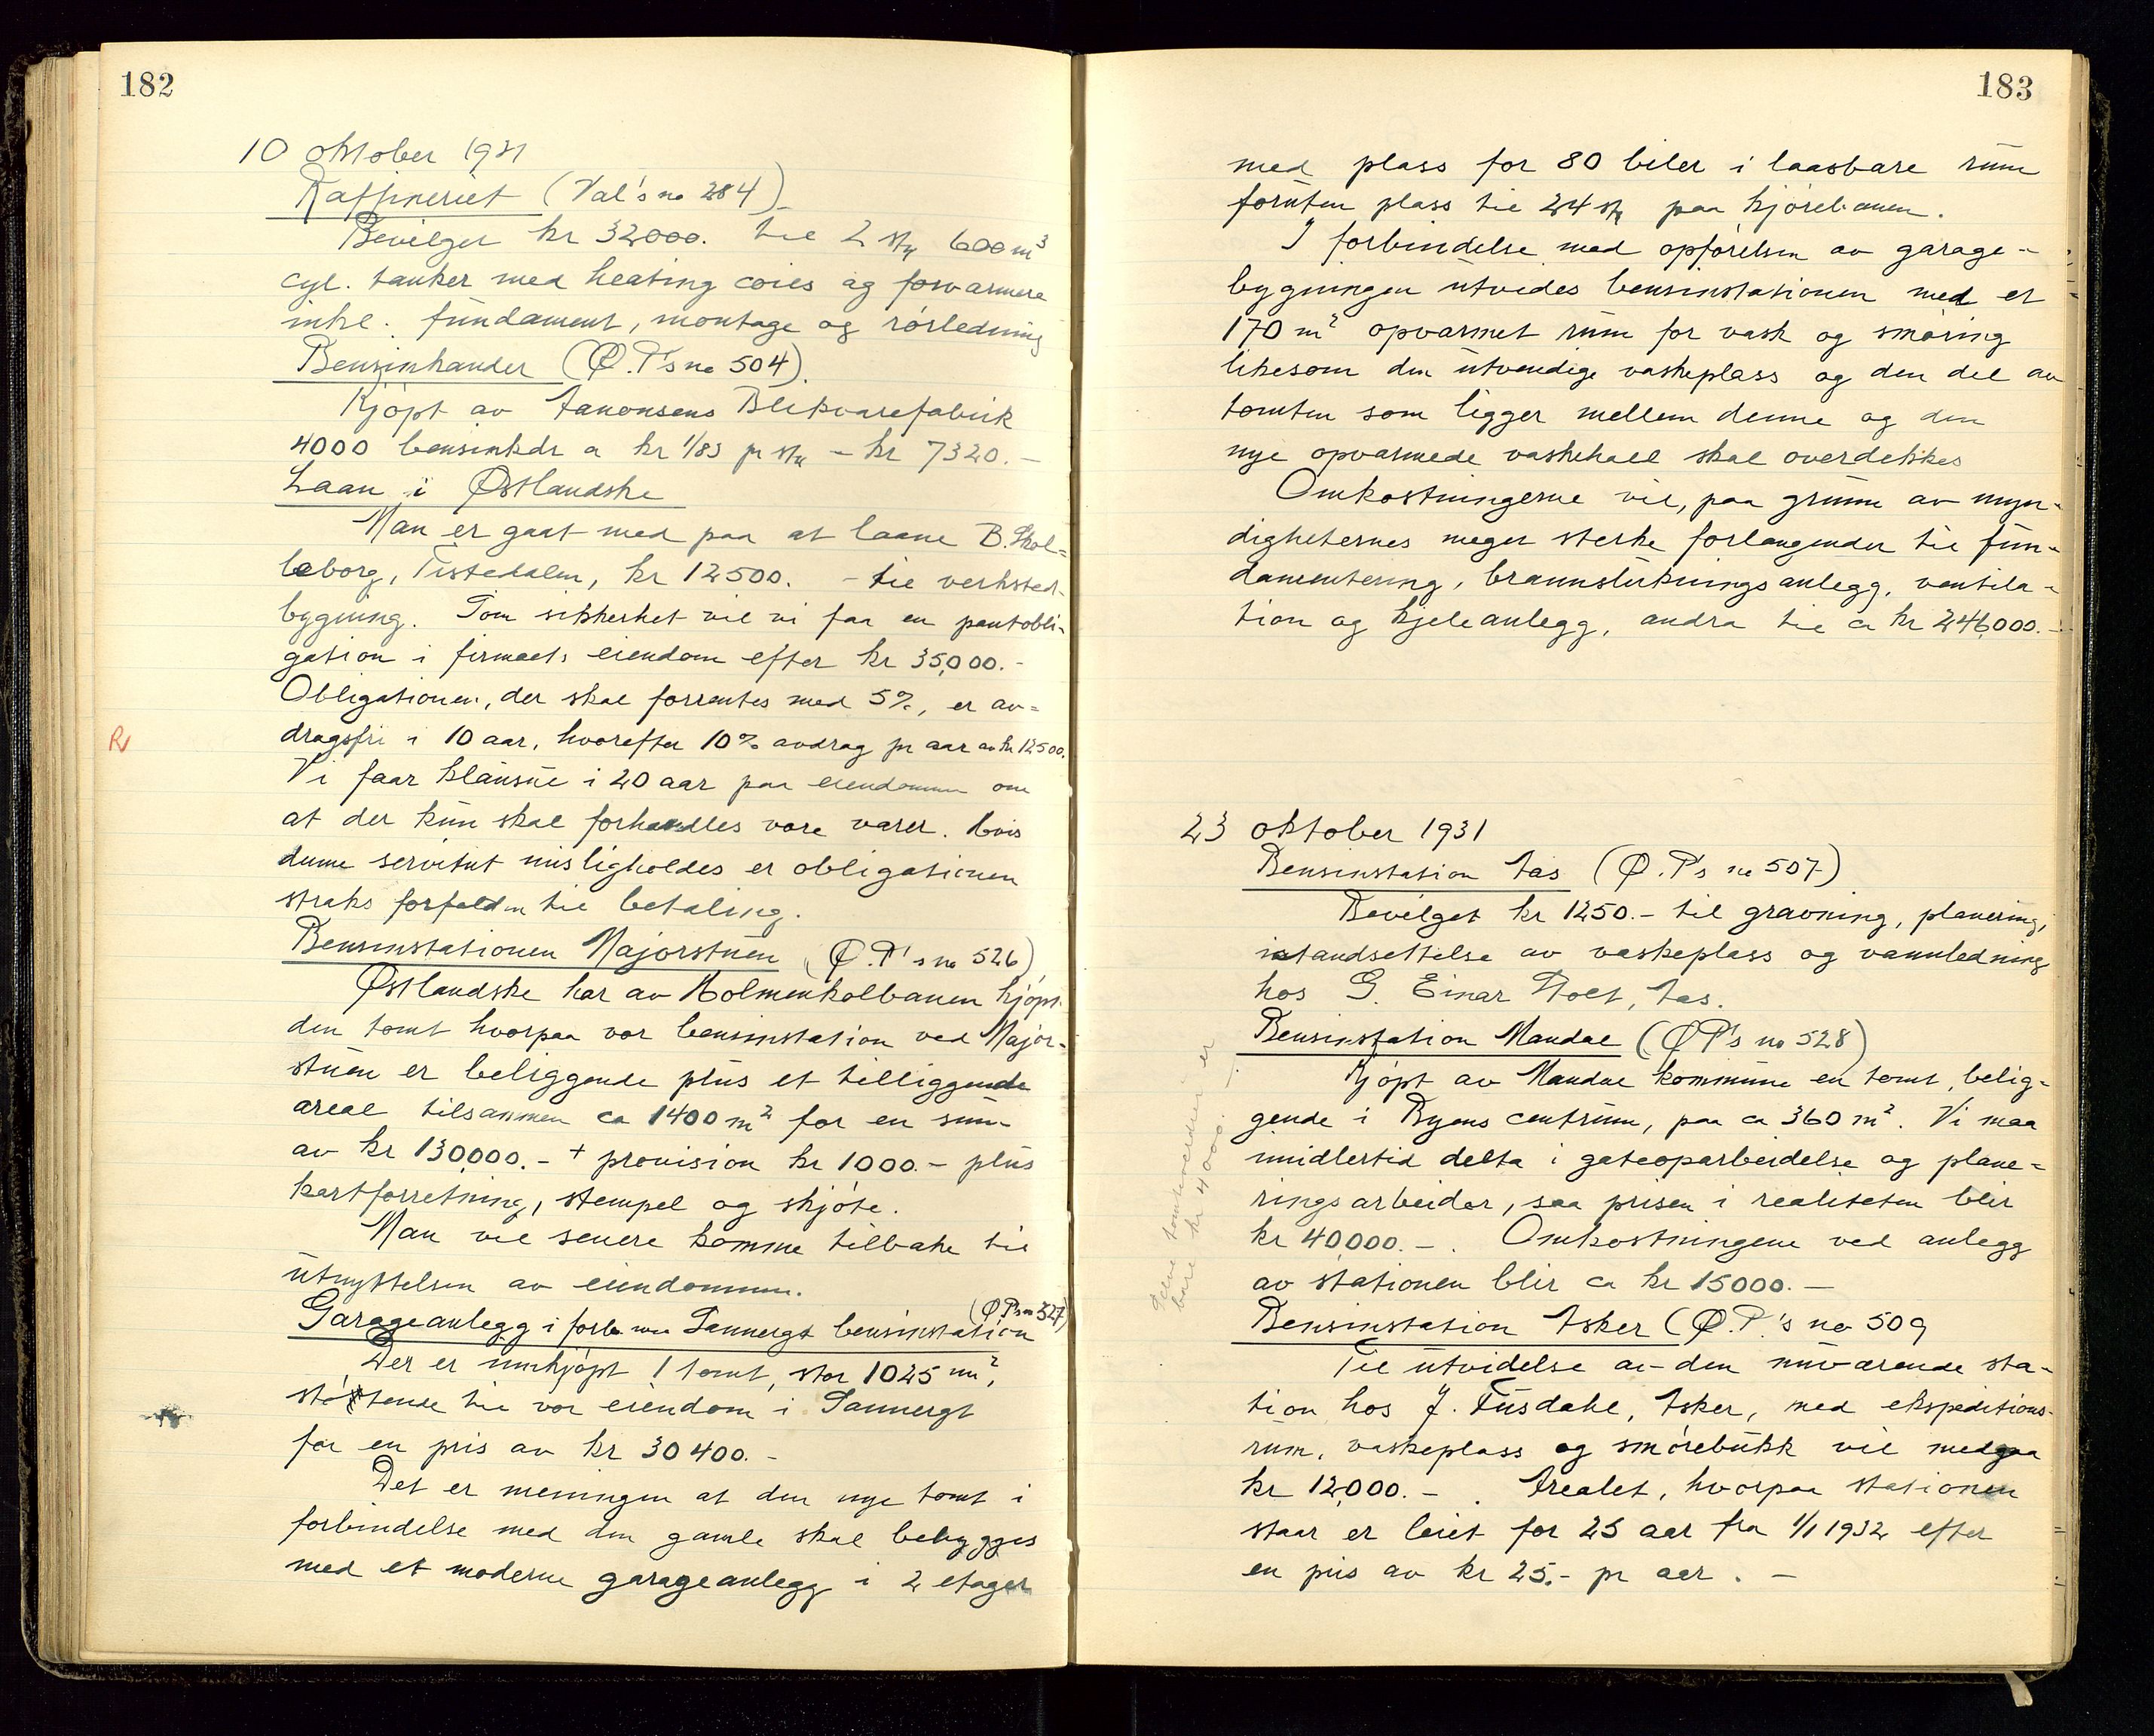 182
10 oktober 1931
Raffineriet (Val's no 284)
Bevilget kr 32000. til 2 stk 600 m³
cyl. tanker med heating coils og forvarmere
inkl. fundament, montage og rørledning
Bensinkander (Ø.P's no 504).
Kjøpt av Blikvarefabrik
4000 bensinkdr a kr 1/83 pr stk – kr 7320.–
Laan i Østlandske
Man er gaat med paa at laane B. Skol=
leborg, Tistedalen, kr 12500. – til verksted-
bygning. Som sikkerhet vil vi faa en pantobli-
gation i firmaets eiendom efter kr 35,000.–
Obligationen, der skal forrentes med 5%, er av=
dragsfri i 10 aar, hvorefter 10% avdrag pr aar av kr 12500.
Vi faar klausul i 20 aar paa eiendommen om
at der kun skal forhandles vore varer. Hvis
denne servitut misligholdes er obligationen
straks forfalden til betaling.
Bensinstationen Majorstuen (Ø.P's no 526)
Østlandske har av Holmenkolbanen kjøpt
den tomt hvorpaa vor bensinstation ved Major-
stuen er beliggende plus et tilliggende
areal tilsammen ca 1400 m² for en sum
av kr 130,000.– + provision kr 1000.– plus
kartforretning, stempel og skjøte.
Man vil senere komme tilbake til
utnyttelsen av eiendommen.
(Ø P's no 527)
Garageanlegg i forb. m. Sannergt bensinstation
Der er innkjøpt 1 tomt, stor 1025 m²,
støtende til vor eiendom i Sannergt
for en pris av kr 30400.–
Det er meningen at den nye tomt i
forbindelse med den gamle skal bebygges
med et moderne garageanlegg i 2 etager
183
med plass for 80 biler i laasbare rum
foruten plass til 24 stk paa kjørebanen.
I forbindelse med opførelsen av garage-
bygningen utvides bensinstationen med et
170 m² opvarmet rum for vask og smøring
likesom den utvendige vaskeplass og den del av
tomten som ligger mellem denne og den
nye opvarmede vaskehall skal overdekkes
Omkostningerne vil, paa grunn av myn-
digheternes meget sterke forlangender til fun-
damentering, brannslukningsanlegg, ventila-
tion og kjeleanlegg, andra til ca kr 246,000.–
23 oktober 1931
Bensinstation Aas (Ø.P's no 507)
Bevilget kr 1250.– til gravning, planering,
istandsettelse av vaskeplass og vannledning
hos G. Einar Holt, Aas.
Bensinstation Mandal (ØP's no 528)
Kjøpt av Mandal kommune en tomt, belig-
gende i Byens centrum, paa ca 360 m². Vi maa
imidlertid delta i gateoparbeidelse og plane=
ringsarbeider, saa prisen i realiteten blir
kr 40,000.– . Omkostningene ved anlegg
av stationen blir ca kr 15000.–
Selve tomteverdien er
bare kr 4000.–
Bensinstation Asker (Ø.P.'s no 509
Til utvidelse av den nuværende sta-
tion hos J. Fusdahl, Asker, med ekspeditions-
rum, vaskeplass og smørebukk vil medgaa
kr 12,000.– . Arealet, hvorpaa stationen
staar er leiet for 25 aar fra 1/1 1932 efter
en pris av kr 25.– pr aar. –